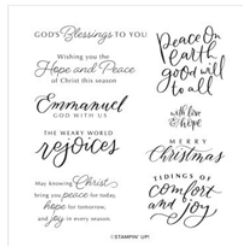 GOD'S Blessings TO YOU
Wishing you the
Hope and Peace
of Christ this season
Emmanuel
GOD WITH US
THE WEARY WORLD
rejoices
May knowing Christ
bring you peace for today,
hope for tomorrow,
and joy in every season.
Peace On
earth
good will
to all
with love
& hope
MERRY
Christmas
TIDINGS OF
comfort
and joy
© STAMPIN' UP!